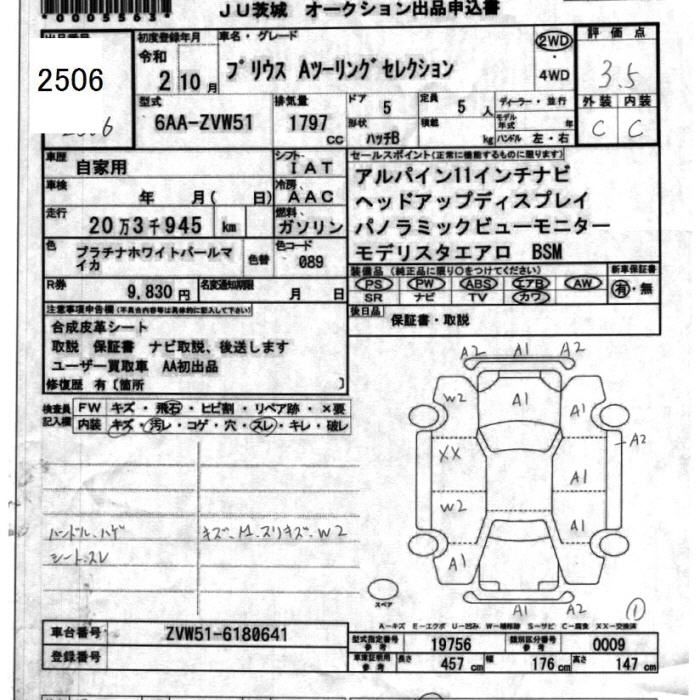 *0005563*
JU茨城 オークション出品申込書
出品番号
2506
初度登録年月
令和
2 10 月
車名・グレード
プリウス Aツーリングセレクション
2WD
・
4WD
評価点
3.5
外装 内装
C C
型式
6AA-ZVW51
排気量
1797
cc
ドア
5
定員
5 人
形状
ハッチB
積載
kg
ディーラー・並行
モデル年式 年
ハンドル 左・右
車歴
自家用
シフト
IAT
車検
年 月( 日)
冷房
AAC
走行
20万3千945 km
燃料
ガソリン
色
プラチナホワイトパールマイカ
色替
色コード
089
セールスポイント(正常に機能するものに限ります)
アルパイン11インチナビ
ヘッドアップディスプレイ
パノラミックビューモニター
モデリスタエアロ BSM
装備品 (純正品に限り○をつけてください)
PS PW ABS エアB AW
SR ナビ TV カワ
新車保証書
有・無
R券
9,830 円
名変通知期限
月 日
後日品
保証書・取説
注意事項申告欄(不具合内容等は具体的に記入して下さい)
合成皮革シート
取説 保証書 ナビ取説、後送します
ユーザー買取車 AA初出品
修復歴 有〔箇所 〕
検査員記入欄
FW キズ・飛石・ヒビ割・リペア跡・×要
内装 キズ・汚レ・コゲ・穴・スレ・キレ・破レ
ハンドル ハゲ
シート スレ
キズ・M.スリキズ・W2
A2 A1 A2
W2 A1 A1
A2
XX A1
W2 A1
A1
A1 A2
スペア
1
A-キズ E-エクボ U-凹み W-補修跡 S-サビ C-腐食 XX-交換済
車台番号
ZVW51-6180641
登録番号
型式指定番号
参考
19756
類別区分番号
参考
0009
車庫証明用
参考
長さ
457 cm
幅
176 cm
高さ
147 cm